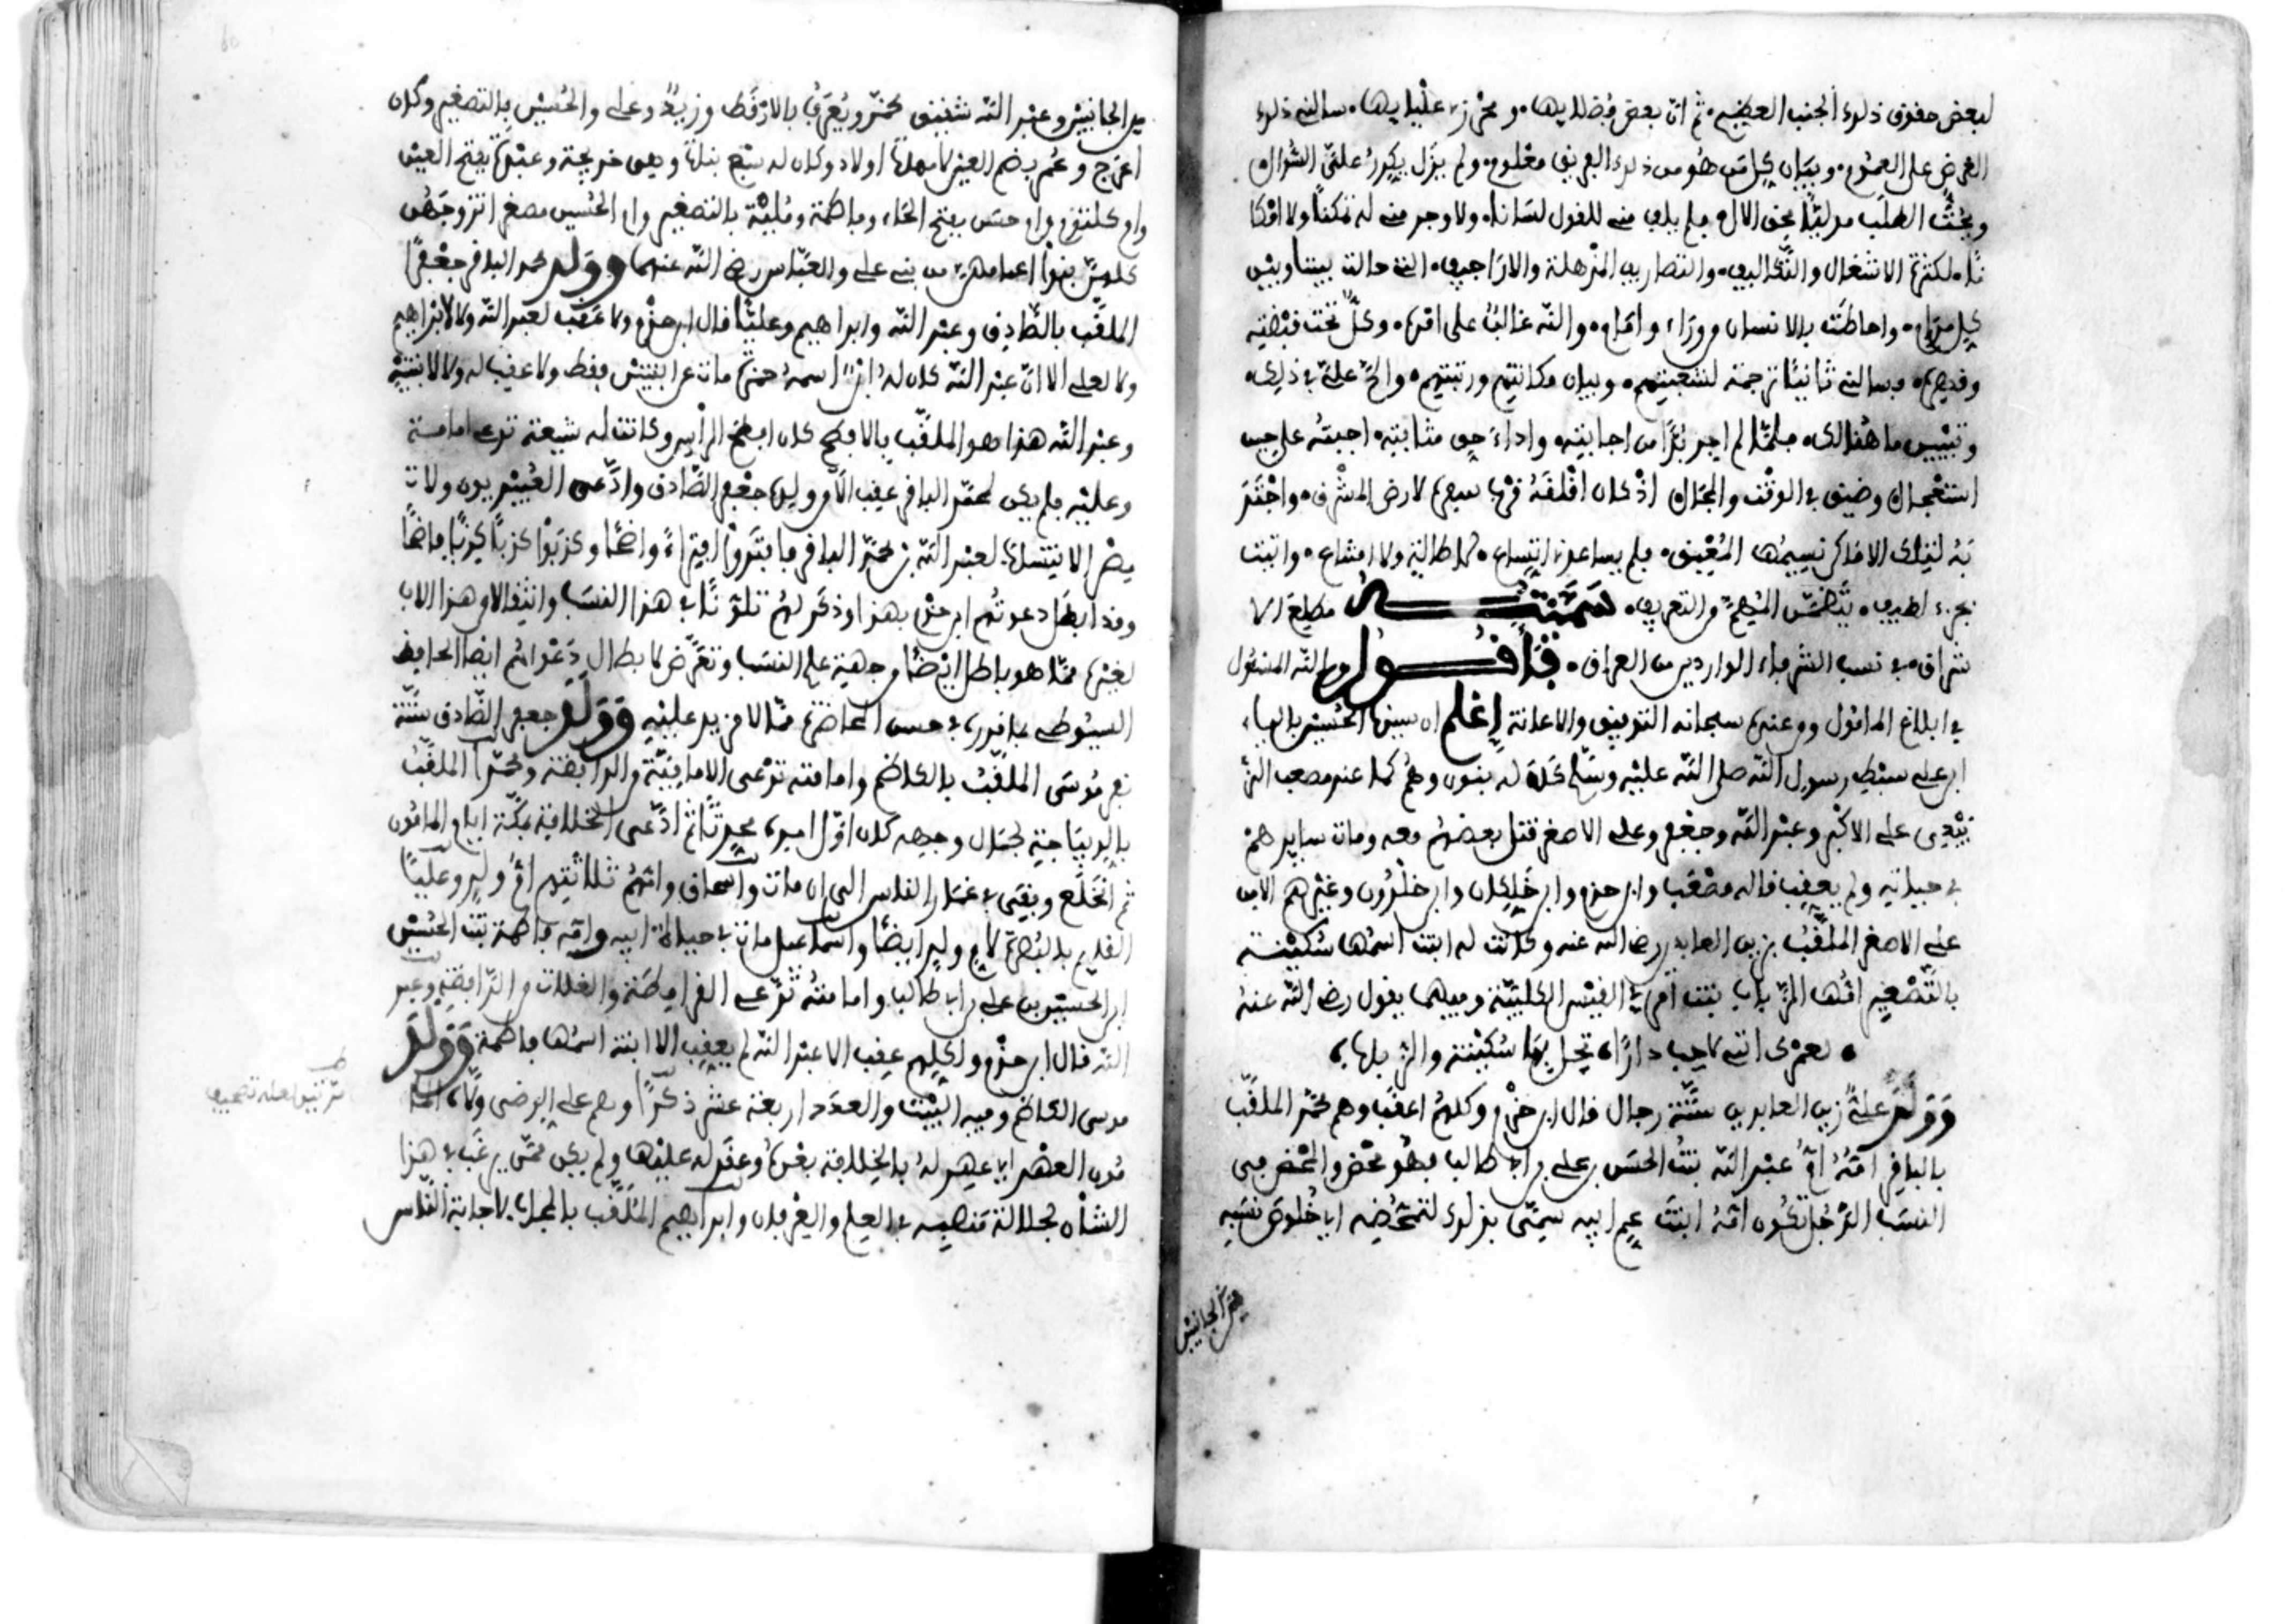 لبعض حقوق ذلك الجنب العظيم، ثم ان بعض فضلايها، ومحرز عليايها، سالني ذلك
الغرض على العموم، وبيان كل من هو من ذلك الفريق معلوم، ولم يزل يكرر علي السؤال
ويحث الطلب مدليا بحق الال، فلم يلف مني للقول لسانا، ولا وجد مني له تمكنا ولا امكا
نا، لكثرة الاشغال والتكاليف، والتصاريف المذهلة والاراجيف، التي حالت بيننا وبين
كل مرام، واحاطت بالانسان من وراء وامام، والله غالب على امره، وكل تحت قبضته
وقهره، فسالني ثانيا ترجمة لشعبتهم، وبيان مكانتهم ورتبتهم، والح علي في ذلك،
وتبيين ما هنالك، فلما لم اجد بدا من اجابته، واداء حق مثابته، اجبته على حين
استعجال وضيق في الوقت والمجال، اذ كان اقلقه سفره لارض المشرق، واجتذ
به لتلك الاماكن نسيمها المعبق، فلم يساعدني اتساع، لمطالبة ولا امتاع، واتيت
بجزء لطيف، يتضمن المهم من التعريف، سميته مطلع الا
شراق، في نسب الشرفاء الواردين من العراق، فأقول والله المسئول
في ابلاغ المامول ومن عنده سبحانه التوفيق والاعانة إعلم ان سيدنا الحسين بالياء
ابن علي سبط رسول الله صلى الله عليه وسلم كان له بنون وهم كما عند مصعب الز
بيري علي الاكبر وعبد الله وجعفر وعلي الاصغر قتل بعضهم معه ومات سايرهم
في حياته ولم يعقب قاله مصعب وابن حزم وابن خلكان وابن خلدون وغيرهم الا من
علي الاصغر الملقب بزين العابدين رضي الله عنه وكانت له ابنت اسمها سكينة
بالتصغير امها الرباب بنت امرئ القيس الكلبية وفيهما يقول رضي الله عنه
لعمرك انني لاحب دارا، تحل بها سكينة والرباب،
وولد علي زين العابدين ستة رجال قال ابن حزم وكلهم اعقب وهم محمد الملقب
بالباقر امه ام عبد الله بنت الحسن بن علي بن ابي طالب فهو محض والمحض من
النسب الرجل تكون امه ابنت عم ابيه سمي بذلك لتمحضه اي خلوص نسبه
من الجانبين
من الجانبين وعبد الله شقيق محمد ويعرف بالارقط وزيد وعلي والحسين بالتصغير وكان
اعرج وعمر بضم العين لامهات اولاد وكان له سبع بنات وهي خديجة وعبدة بفتح العين
وام كلثوم وام حسن بفتح الحاء وفاطمة وعلية بالتصغير وام الحسين مصغر اتزوجهن
كلهن بنوا اعمامهن من بني علي والعباس رضي الله عنهما وولد محمد الباقر جعفرا
الملقب بالصادق وعبد الله وابراهيم وعليا قال ابن حزم ولا عقب لعبد الله ولا لابراهيم
ولا لعلي الا ان عبد الله كان له ابن اسمه حمزة مات عن ابنتين فقط ولا عقب له ولا لابنتيه
وعبد الله هذا هو الملقب بالافطح كان افطح الراس وكانت له شيعة تدعي امامته
وعليه فلم يكن لمحمد الباقر عقب الا من ولده جعفر الصادق وادعى العبيديون ولات
مصر الانتساب لعبد الله بن محمد الباقر فافتروا افتراء واضحا وكذبوا كذبا فاضحا
وقد ابطل دعوتهم ابن حزم بهذا وذكر لهم تلونا في هذا النسب وانتقالا من هذا الاب
لغيره مما هو باطل ايضا من جهة علم النسب وتعرض لابطال دعواهم ايضا الحافظ
السيوطي في حسن المحاضرة مما لا مزيد عليه وولد جعفر الصادق ستة
نفر موسى الملقب بالكاظم وامامته تدعى الامامية والرافضة ومحمدا الملقب
بالديباجة لجمال وجهه كان اول امره محدثا ثم ادعى الخلافة بمكة ايام المامون
ثم انخلع وبقي في غمار الناس الى ان مات واسحاق وامهم ثلاثتهم ام ولد وعليا
القايم بالبصرة لام ولد ايضا واسماعيل مات في حياة ابيه وامه فاطمة بنت الحسين
ابن الحسين بن علي بن ابي طالب وامامته تدعي القرامطة والغلات من الرافضة وعبد
الله قال ابن حزم ولكلهم عقب الا عبد الله لم يعقب الا ابنة اسمها فاطمة وولد
موسى الكاظم وفيه البيت والعدد اربعة عشر ذكرا وهم علي الرضى ولاه الما
مون العهد اي عهد له بالخلافة بعده وعقد له عليها ولم يكن ممن يرغب في هذا
الشان لجلالة منصبه في العلم والعرفان وابراهيم الملقب بالمجاب لاجابة الناس